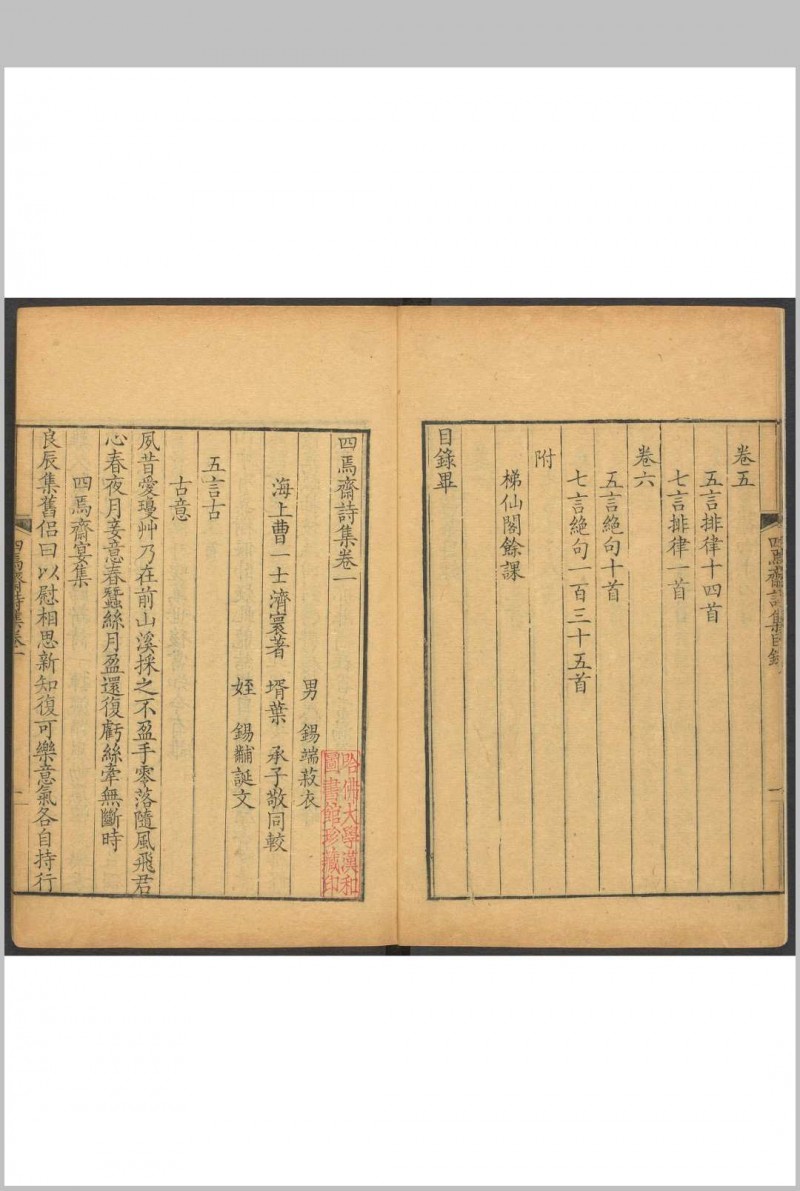 卷五
五言排律十四首
七言排律一首
卷六
五言絶句十首
七言絶句一百三十五首
附
梯仙閣餘課
目錄畢
四焉齋詩集目錄
一
四焉齋詩集卷一
哈佛大學漢和
圖書館珍藏印
男 錫端菽衣
海上曹一士濟寰著 壻葉 承子敬同較
姪 錫黼誕文
五言古
古意
夙昔愛瓊艸乃在前山溪採之不盈手零落隨風飛君
心春夜月妾意春蠶絲月盈還復虧絲牽無斷時
四焉齋宴集
良辰集舊侶曰以慰相思新知復可樂意氣各自持行
四焉齋詩集卷一
一